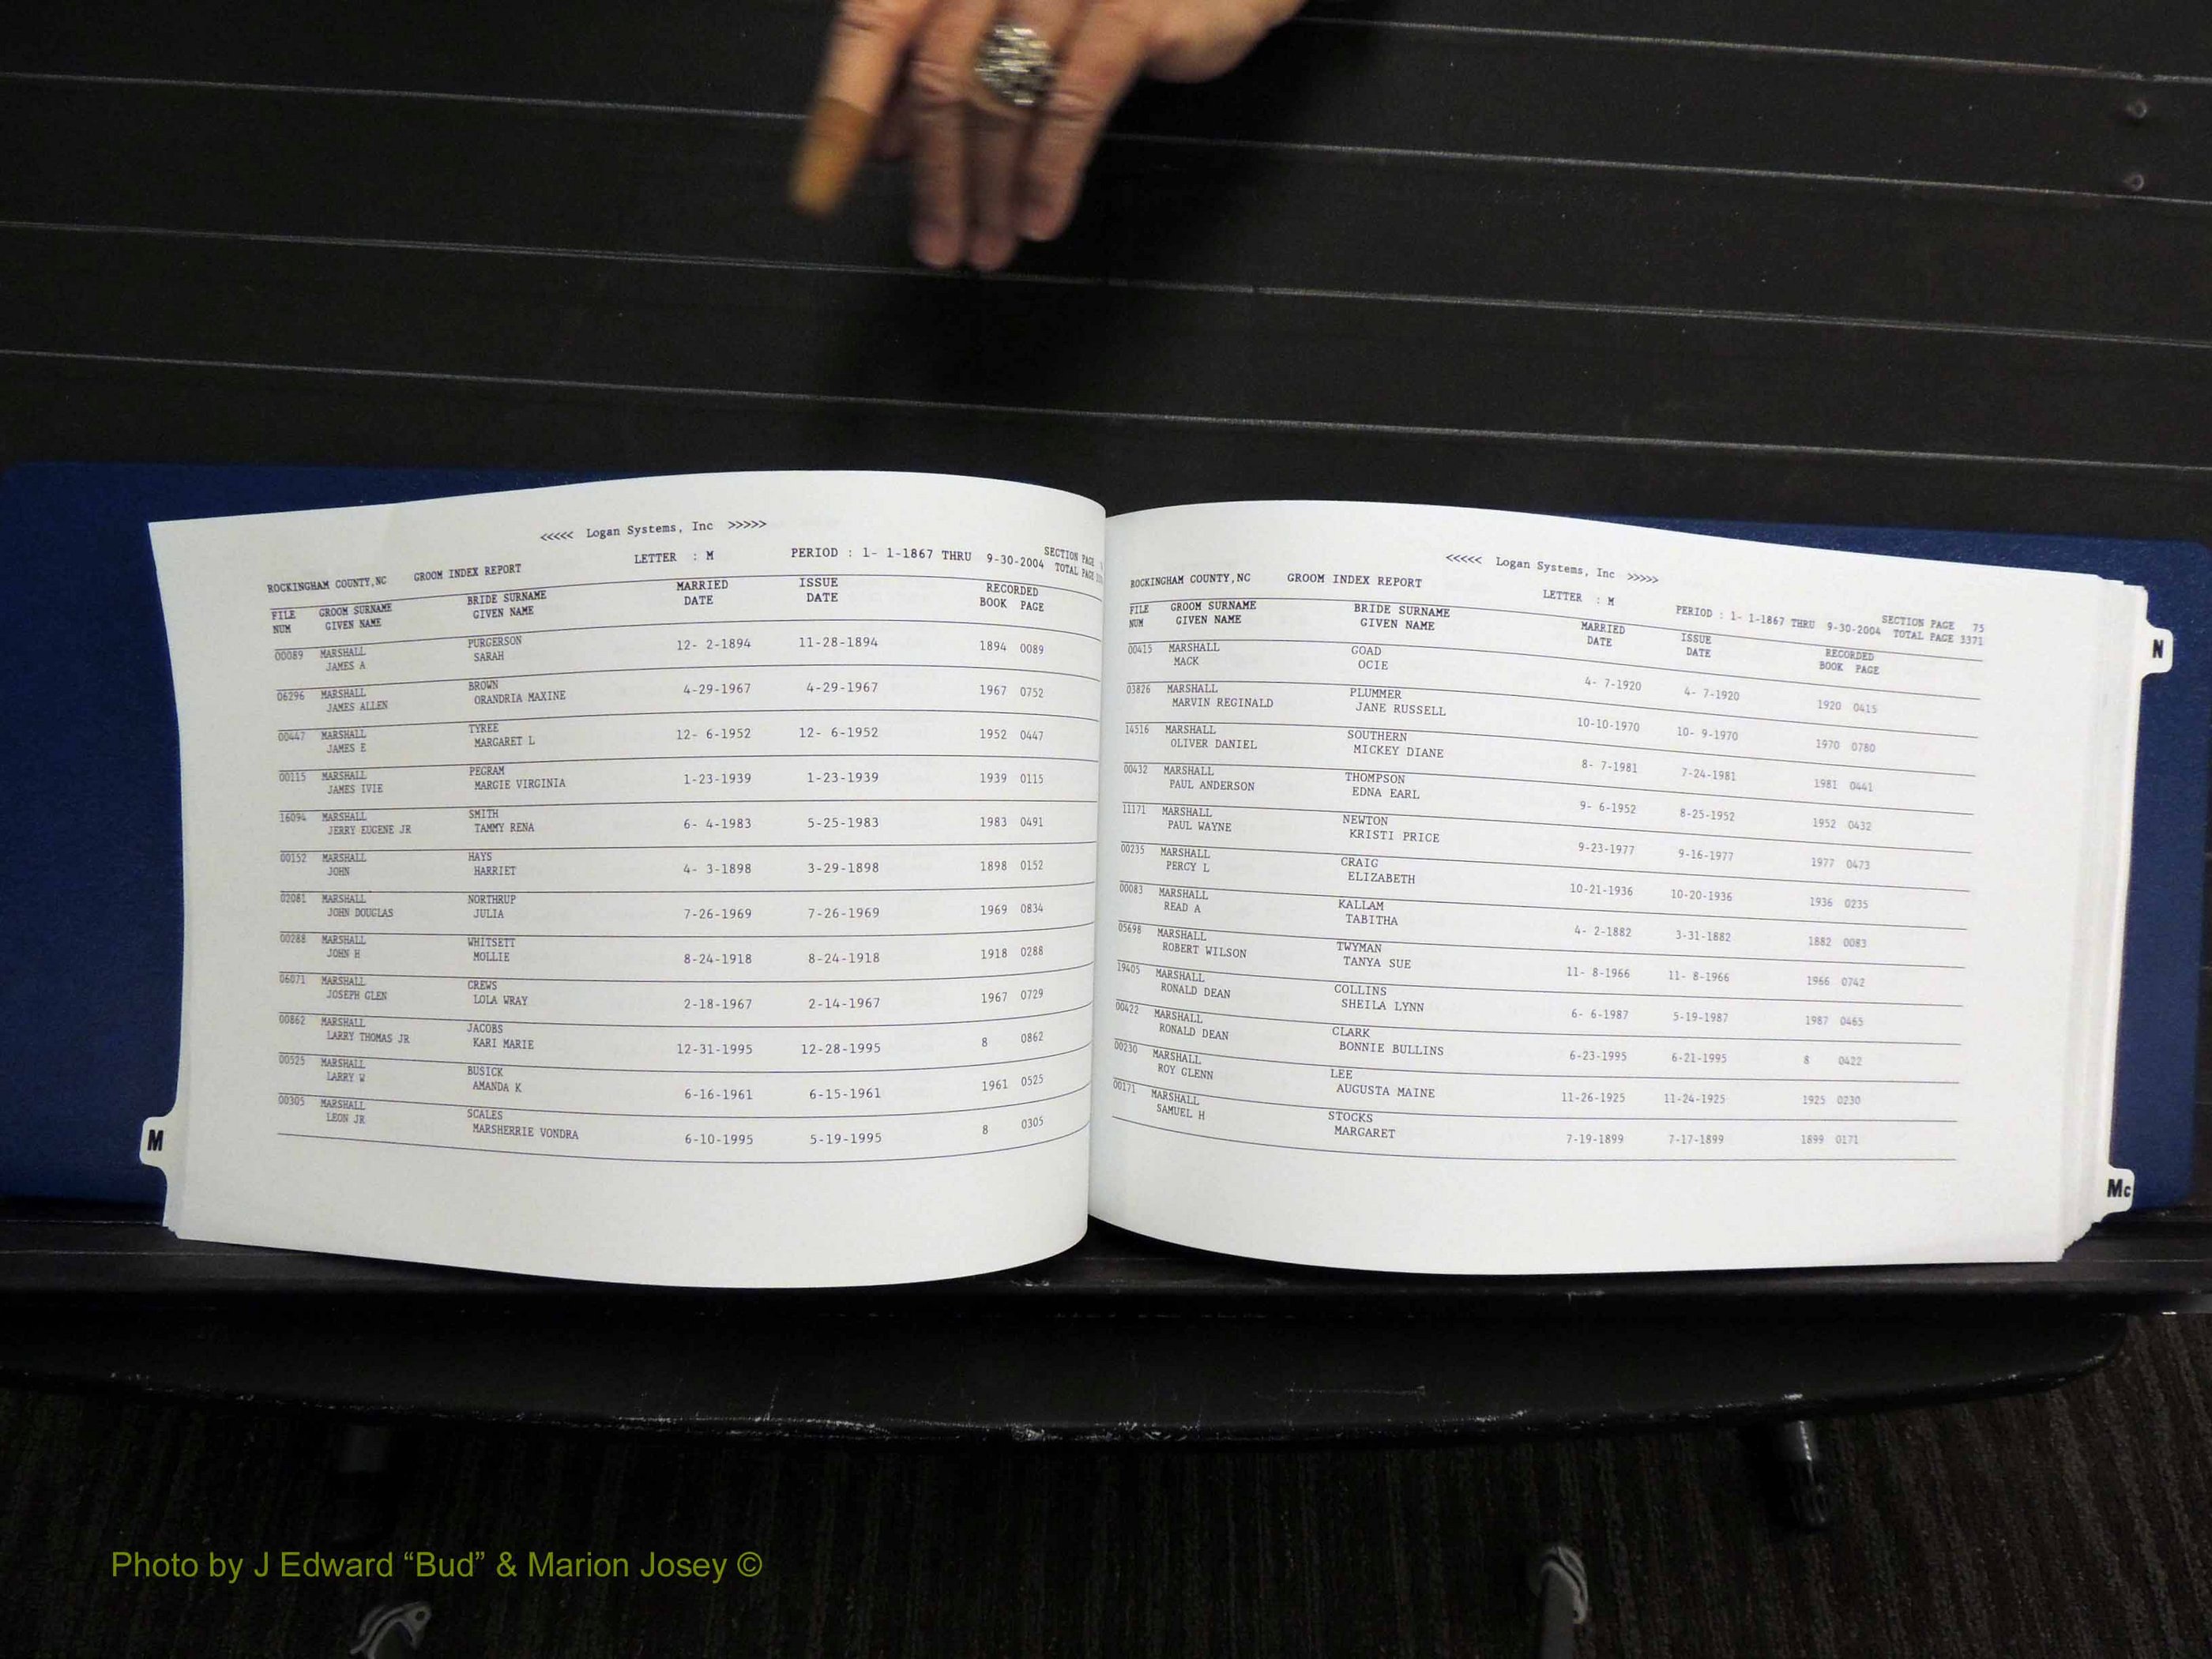 <<<<< Logan Systems, Inc >>>>>
ROCKINGHAM COUNTY,NC GROOM INDEX REPORT LETTER : M PERIOD : 1- 1-1867 THRU 9-30-2004 SECTION PAGE
TOTAL PAGE
FILE GROOM SURNAME BRIDE SURNAME MARRIED ISSUE RECORDED
NUM GIVEN NAME GIVEN NAME DATE DATE BOOK PAGE
00089 MARSHALL PURGERSON 12- 2-1894 11-28-1894 1894 0089
JAMES A SARAH
06296 MARSHALL BROWN 4-29-1967 4-29-1967 1967 0752
JAMES ALLEN ORANDRIA MAXINE
00447 MARSHALL TYREE 12- 6-1952 12- 6-1952 1952 0447
JAMES E MARGARET L
00115 MARSHALL PEGRAM 1-23-1939 1-23-1939 1939 0115
JAMES IVIE MARGIE VIRGINIA
16094 MARSHALL SMITH 6- 4-1983 5-25-1983 1983 0491
JERRY EUGENE JR TAMMY RENA
00152 MARSHALL HAYS 4- 3-1898 3-29-1898 1898 0152
JOHN HARRIET
02081 MARSHALL NORTHRUP 7-26-1969 7-26-1969 1969 0834
JOHN DOUGLAS JULIA
00288 MARSHALL WHITSETT 8-24-1918 8-24-1918 1918 0288
JOHN H MOLLIE
06071 MARSHALL CREWS 2-18-1967 2-14-1967 1967 0729
JOSEPH GLEN LOLA WRAY
00862 MARSHALL JACOBS 12-31-1995 12-28-1995 8 0862
LARRY THOMAS JR KARI MARIE
00525 MARSHALL BUSICK 6-16-1961 6-15-1961 1961 0525
LARRY W AMANDA K
00305 MARSHALL SCALES 6-10-1995 5-19-1995 8 0305
LEON JR MARSHERRIE VONDRA
M
<<<<< Logan Systems, Inc >>>>>
ROCKINGHAM COUNTY,NC GROOM INDEX REPORT LETTER : M PERIOD : 1- 1-1867 THRU 9-30-2004 SECTION PAGE 75
TOTAL PAGE 3371
FILE GROOM SURNAME BRIDE SURNAME MARRIED ISSUE RECORDED
NUM GIVEN NAME GIVEN NAME DATE DATE BOOK PAGE
00415 MARSHALL GOAD 4- 7-1920 4- 7-1920 1920 0415
MACK OCIE
03826 MARSHALL PLUMMER 10-10-1970 10- 9-1970 1970 0780
MARVIN REGINALD JANE RUSSELL
14516 MARSHALL SOUTHERN 8- 7-1981 7-24-1981 1981 0441
OLIVER DANIEL MICKEY DIANE
00432 MARSHALL THOMPSON 9- 6-1952 8-25-1952 1952 0432
PAUL ANDERSON EDNA EARL
11171 MARSHALL NEWTON 9-23-1977 9-16-1977 1977 0473
PAUL WAYNE KRISTI PRICE
00235 MARSHALL CRAIG 10-21-1936 10-20-1936 1936 0235
PERCY L ELIZABETH
00083 MARSHALL KALLAM 4- 2-1882 3-31-1882 1882 0083
READ A TABITHA
05698 MARSHALL TWYMAN 11- 8-1966 11- 8-1966 1966 0742
ROBERT WILSON TANYA SUE
19405 MARSHALL COLLINS 6- 6-1987 5-19-1987 1987 0465
RONALD DEAN SHEILA LYNN
00422 MARSHALL CLARK 6-23-1995 6-21-1995 8 0422
RONALD DEAN BONNIE BULLINS
00230 MARSHALL LEE 11-26-1925 11-24-1925 1925 0230
ROY GLENN AUGUSTA MAINE
00171 MARSHALL STOCKS 7-19-1899 7-17-1899 1899 0171
SAMUEL H MARGARET
N
Mc
Photo by J Edward “Bud” & Marion Josey ©